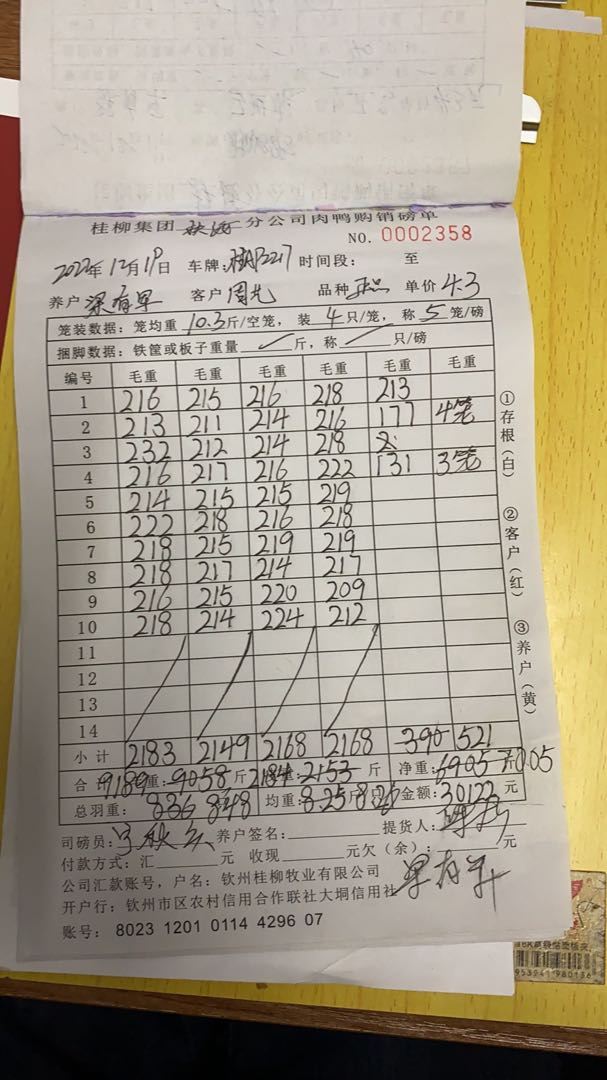 桂柳集团 钦州 分公司肉鸭购销磅单
NO. 0002358
2022年 12月 19日 车牌: 时间段: 至
养户 梁有军 客户 周九 品种 单价 4.3
笼装数据: 笼均重 10.3 斤/空笼, 装 4 只/笼, 称 5 笼/磅
捆脚数据: 铁筐或板子重量 斤, 称 只/磅
编号 毛重 毛重 毛重 毛重 毛重 毛重
1 216 215 216 218 213
2 213 211 214 216 177 4笼
3 232 212 214 218
4 216 217 216 222 131 3笼
5 214 215 215 219
6 222 218 216 218
7 218 215 219 219
8 218 217 214 217
9 216 215 220 209
10 218 214 224 212
11
12
13
14
小计 2183 2149 2168 2168 390 521
合计 9189 重: 9058 斤 2184 重: 2153 斤 净重: 6905 7005
总羽重: 836 848 均重: 8.25 8.26 金额: 30122 元
司磅员: 养户签名: 提货人:
付款方式: 汇 元 收现 元欠(余): 元
公司汇款账号, 户名: 钦州桂柳牧业有限公司
开户行: 钦州市区农村信用合作联社大垌信用社
梁有军
账号: 8023 1201 0114 4296 07
①存根(白)
②客户(红)
③养户(黄)
953941 980136